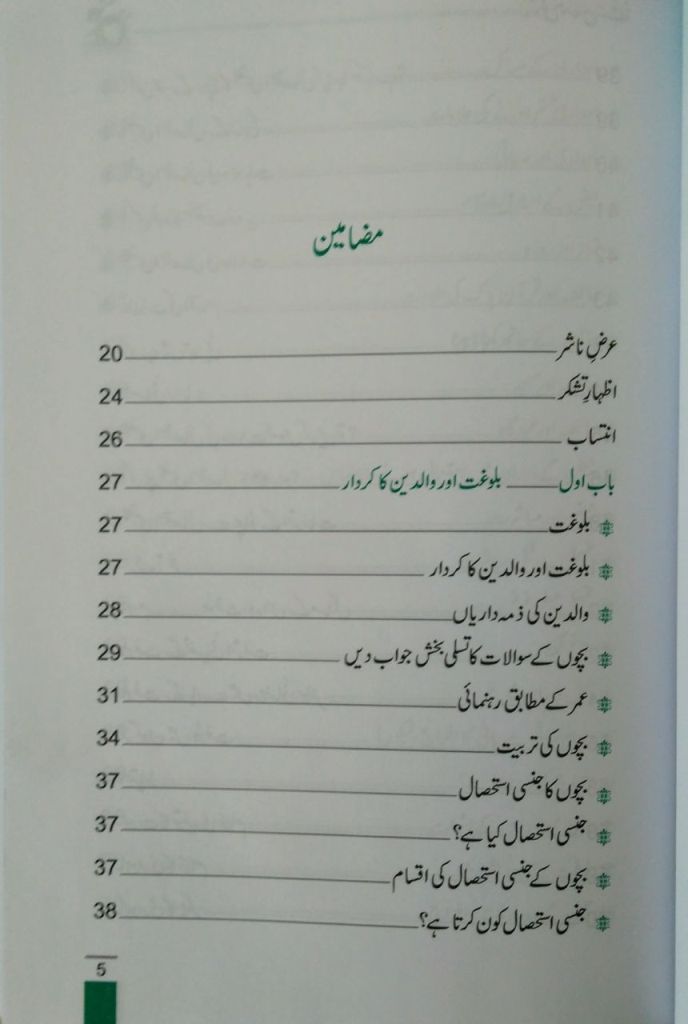 مضامین
عرضِ ناشر 20
اظہارِ تشکر 24
انتساب 26
باب اول بلوغت اور والدین کا کردار 27
بلوغت 27
بلوغت اور والدین کا کردار 27
والدین کی ذمہ داریاں 28
بچوں کے سوالات کا تسلی بخش جواب دیں 29
عمر کے مطابق رہنمائی 31
بچوں کی تربیت 34
بچوں کا جنسی استحصال 37
جنسی استحصال کیا ہے؟ 37
بچوں کے جنسی استحصال کی اقسام 37
جنسی استحصال کون کرتا ہے؟ 38
5